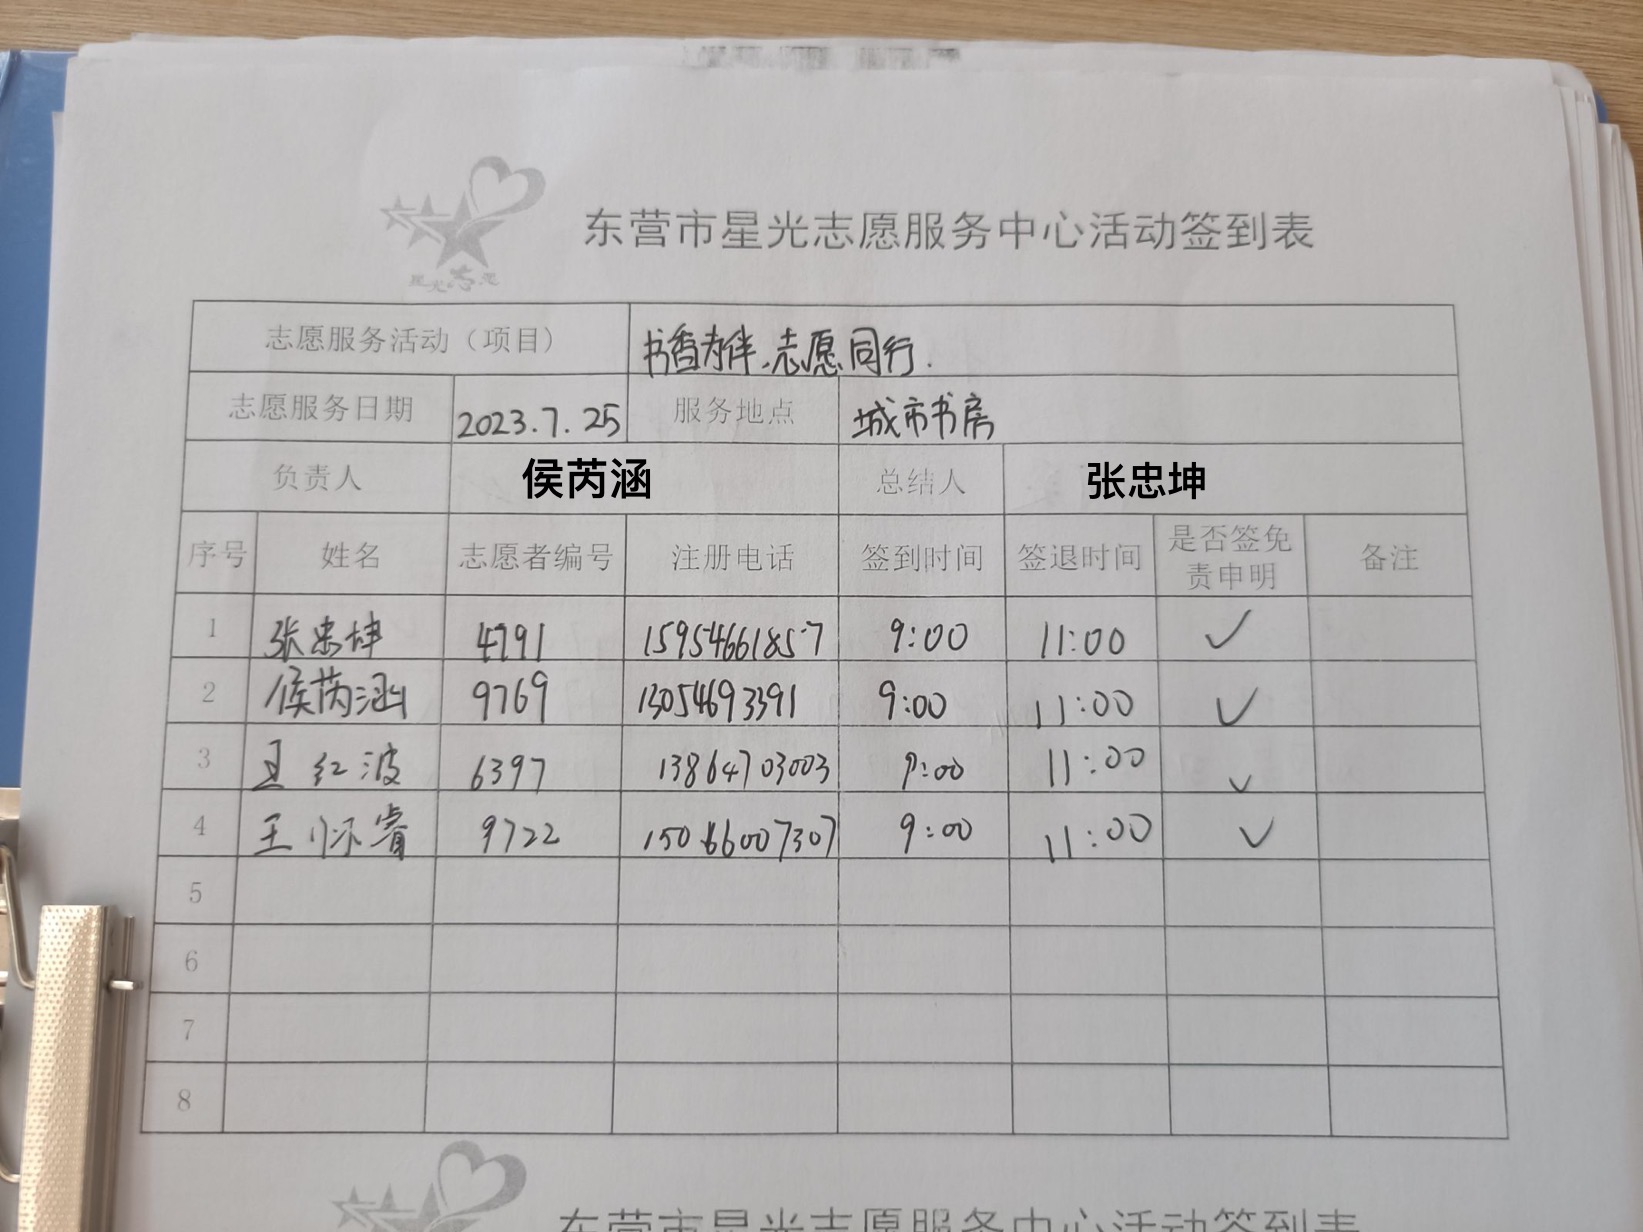 星光志愿
东营市星光志愿服务中心活动签到表
志愿服务活动（项目） 书香为伴.志愿同行.
志愿服务日期 2023.7.25 服务地点 城市书房
负责人 侯芮涵 总结人 张忠坤
序号 姓名 志愿者编号 注册电话 签到时间 签退时间 是否签免责申明 备注
1 张忠坤 4791 15954661857 9:00 11:00 ✓
2 侯芮涵 9769 13054693391 9:00 11:00 ✓
3 王红波 6397 13864703003 9:00 11:00 ✓
4 王怀睿 9722 15066007307 9:00 11:00 ✓
5
6
7
8
东营市星光志愿服务中心活动签到表